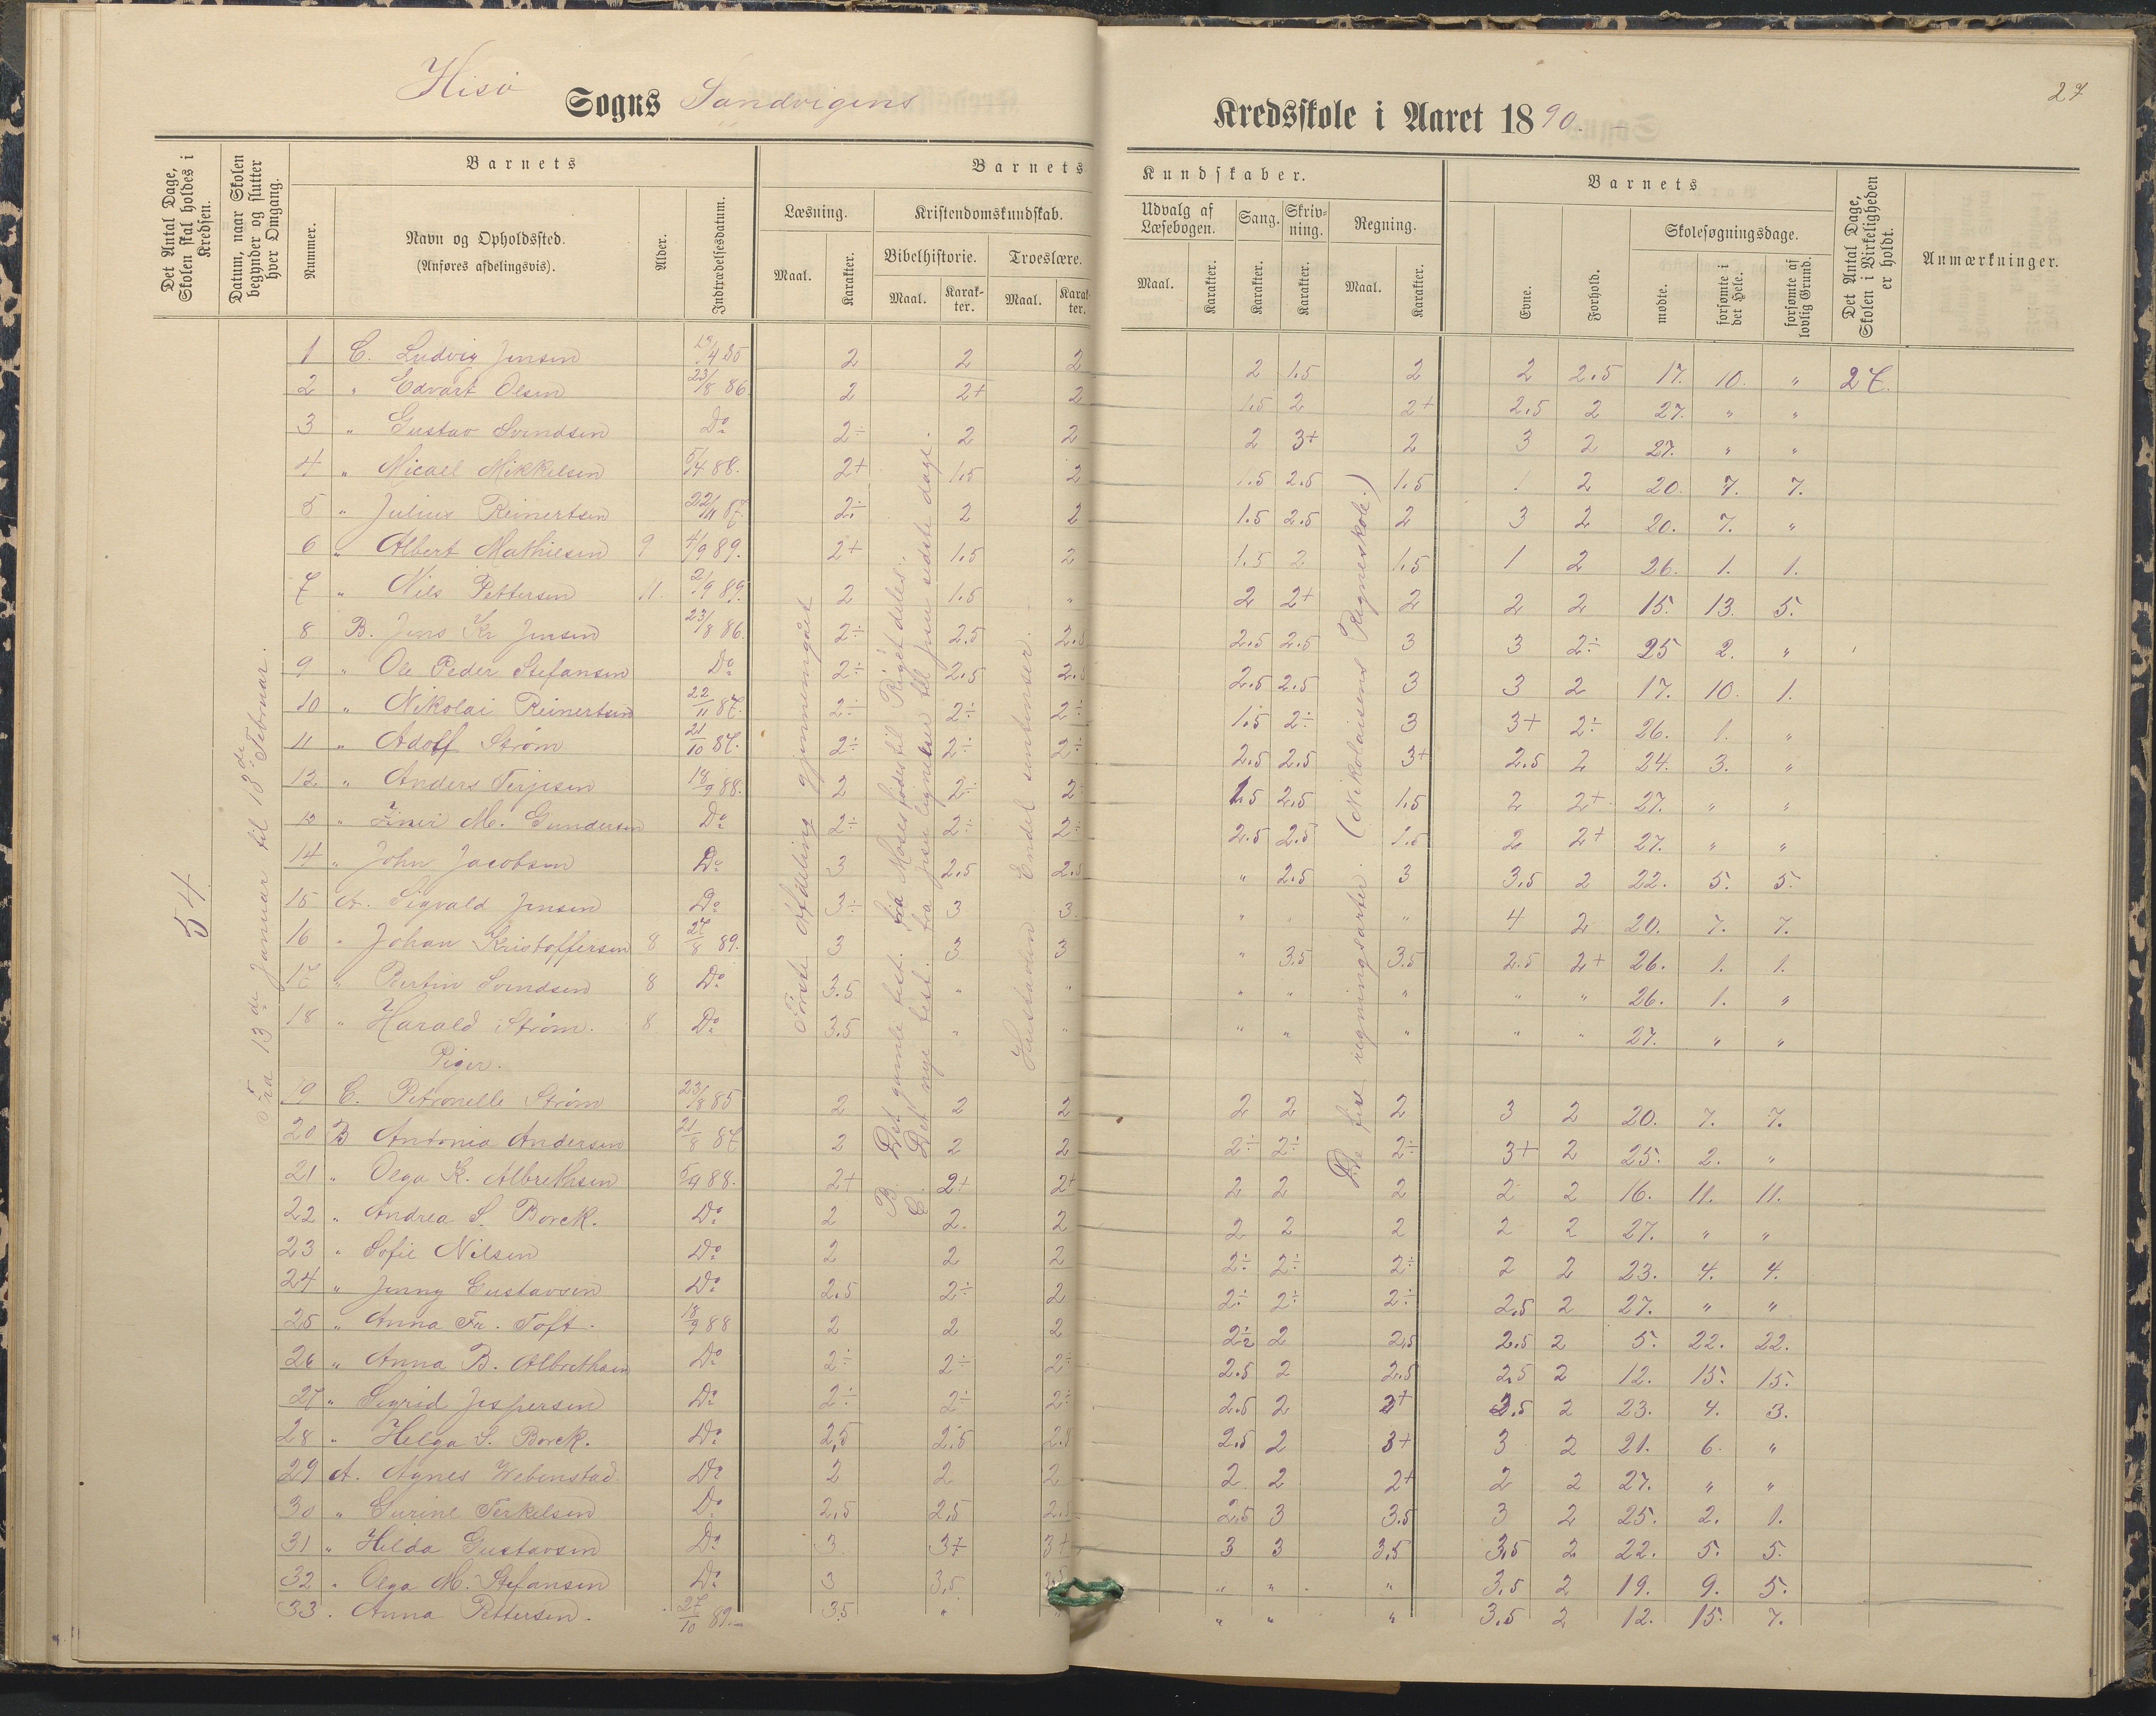 27
Hisø Sogns Sandvigens Kredsskole i Aaret 1890.
Det Antal Dage, Skolen skal holdes i Kredsen.
Datum, naar Skolen begynder og slutter hver Omgang.
Barnets
Nummer.
Navn og Opholdssted.
(Anføres afdelingsvis).
Alder.
Indtrædelsesdatum.
Barnets Kundskaber.
Læsning.
Maal. Karakter.
Kristendomskundskab.
Bibelhistorie. Troeslære.
Maal. Karakter. Maal. Karakter.
Udvalg af Læsebogen.
Maal. Karakter.
Sang. Karakter.
Skrivning. Karakter.
Regning.
Maal. Karakter.
Barnets
Evne. Forhold.
Skolesøgningsdage.
mødte. forsømte i det Hele. forsømte af lovlig Grund.
Det Antal Dage, Skolen i Virkeligheden er holdt.
Anmærkninger.
54
Fra 13de Januar til 18de Februar.
Første Afdeling gjennemgået
B. Det gamle test. fra Moses fødes til Riget deles.
C. Det nye test. fra Jesu lignelser til Jesu sidste dage.
Endel sentenser.
De fire regningsarter. (Nikolaisens Regneskole.)
1 C. Ludvig Jensen 4 85 2 2 2 2 1.5 2 2 2.5 17. 10. " 27.
2 " Edvart Olsen 23/8 86 2 2+ 2 1.5 2 2+ 2.5 2 27. " "
3 " Gustav Svendsen Do 2÷ 2 2 2 3+ 2 3 2 27. " "
4 " Micael Mikkelsen 88. 2+ 1.5 2 1.5 2.5 1.5 1 2 20. 7. 7.
5 " Julius Reinertsen 22/11 87. 2÷ 2 2 1.5 2.5 2 3 2 20. 7. "
6 " Albert Mathiesen 9 4/9 89. 2+ 1.5 2 1.5 2 1.5 1 2 26. 1. 1.
7 " Nils Pettersen 11. 2/9 89. 2 1.5 " 2 2+ 2 2 2 15. 13. 5.
8 B. Jens Kr Jensen 23/8 86. 2÷ 2.5 2.5 2.5 2.5 3 3 2÷ 25 2. "
9 " Ole Peder Stefansen Do 2÷ 2.5 2.5 2.5 2.5 3 3 2 17. 10. 1.
10 " Nikolai Reinertsen 22/11 87. 2÷ 2÷ 2÷ 1.5 2÷ 3 3+ 2÷ 26. 1. "
11 " Adolf Strøm 21/10 87. 2÷ 2÷ 2÷ 2.5 2.5 3+ 2.5 2 24. 3. "
12 " Anders Terjesen 18/9 88. 2 2÷ 2÷ 1.5 2.5 1.5 2 2+ 27. " "
13 " M. Gundersen Do 2÷ 2÷ 2÷ 2.5 2.5 1.5 2 2+ 27. " "
14 " John Jacobsen Do 3 2.5 2.5 " 2.5 3 3.5 2 22. 5. 5.
15 A. Sigvald Jensen Do 3÷ 3 3. " " " 4 2 20. 7. 7.
16 " Johan Kristoffersen 8 27/8 89. 3 3 3 " 3.5 3.5 2.5 2+ 26. 1. 1.
17 " Bertin Svendsen 8 Do 3.5 " " " " " " " 26. 1. "
18 " Harald Strøm. 8 Do 3.5 " " " " " " " 27. " "
Piger.
19 C. Petronelle Strøm 23/8 85 2 2 2 2 2 2 3 2 20. 7. 7.
20 B Antonia Andersen 21/8 87 2 2 2 2÷ 2÷ 2÷ 3+ 2 25. 2. "
21 " Olga K. Albrethsen 88. 2+ 2+ 2+ 2 2 2 2 2 16. 11. 11.
22 " Andrea S. Borck. Do 2 2. 2 2 2 2 2 2 27. " "
23 " Sofie Nilsen Do 2 2 2 2÷ 2÷ 2÷ 2 2 23. 4. 4.
24 " Jenny Gustavsen Do 2.5 2÷ 2 2÷ 2÷ 2÷ 2.5 2 27. " "
25 " Anna Fr. Toft. 18/9 88 2 2 2 2÷ 2 2.5 2.5 2 5. 22. 22.
26 " Anna B. Albrethsen Do 2÷ 2÷ 2÷ 2.5 2 2.5 2.5 2 12. 15. 15.
27 " Sigrid Jespersen Do 2÷ 2÷ 2÷ 2.5 2 3+ 2.5 2 23. 4. 3.
28 " Helga S. Borck. Do 2,5 2.5 2.5 2.5 2 3+ 3 2 21. 6. "
29 A. Agnes Hebenstad. Do 2 2 2 2 2 2+ 2 2 27. " "
30 " Gurine Terkelsen Do 2,5 2,5 2,5 2,5 3 3.5 3 2 25. 2. 1.
31 " Hilda Gustavsen Do 3 3+ 3+ 3 3 3.5 3,5 2 22. 5. 5.
32 " Olga M. Stefansen Do 3 3,5 " " " 3,5 2 19. 9. 5.
33 . Anna Pettersen. 27/10 89. 3.5 " " " " " 3.5 2 12. 15. 7.